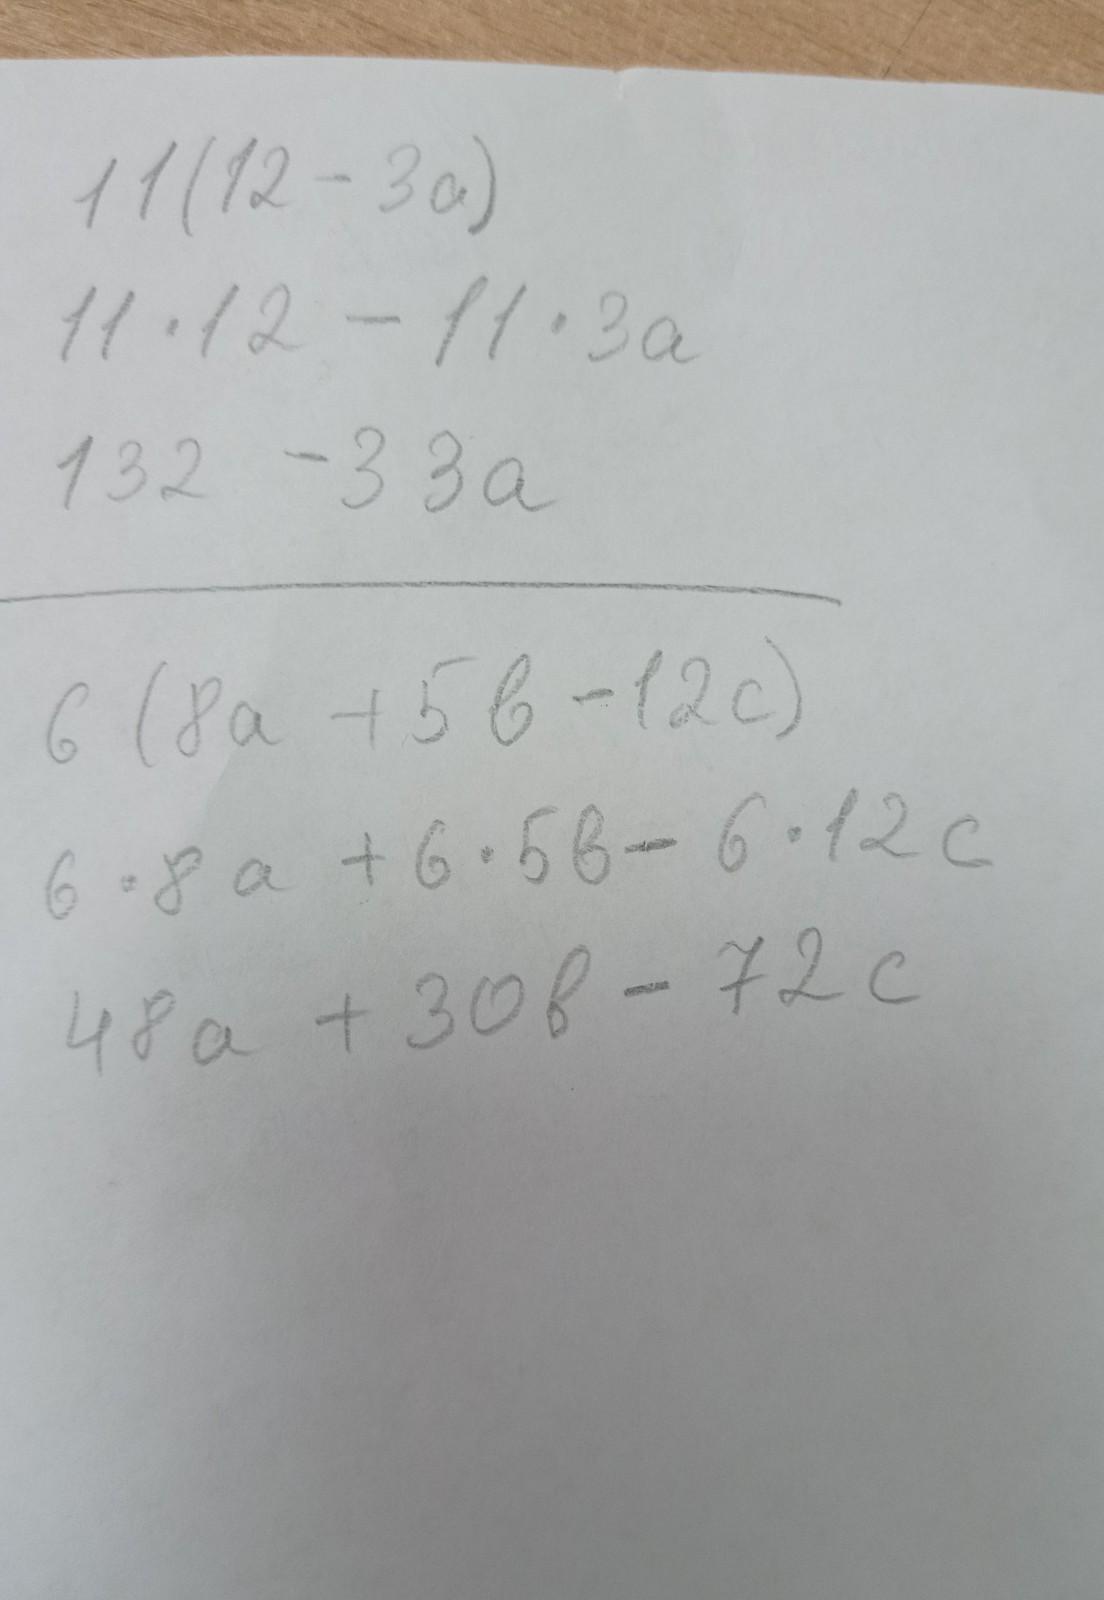 11(12 - 3a)
11·12 - 11·3a
132 - 33a
6(8a + 5в - 12c)
6·8a + 6·5в - 6·12c
48a + 30в - 72c